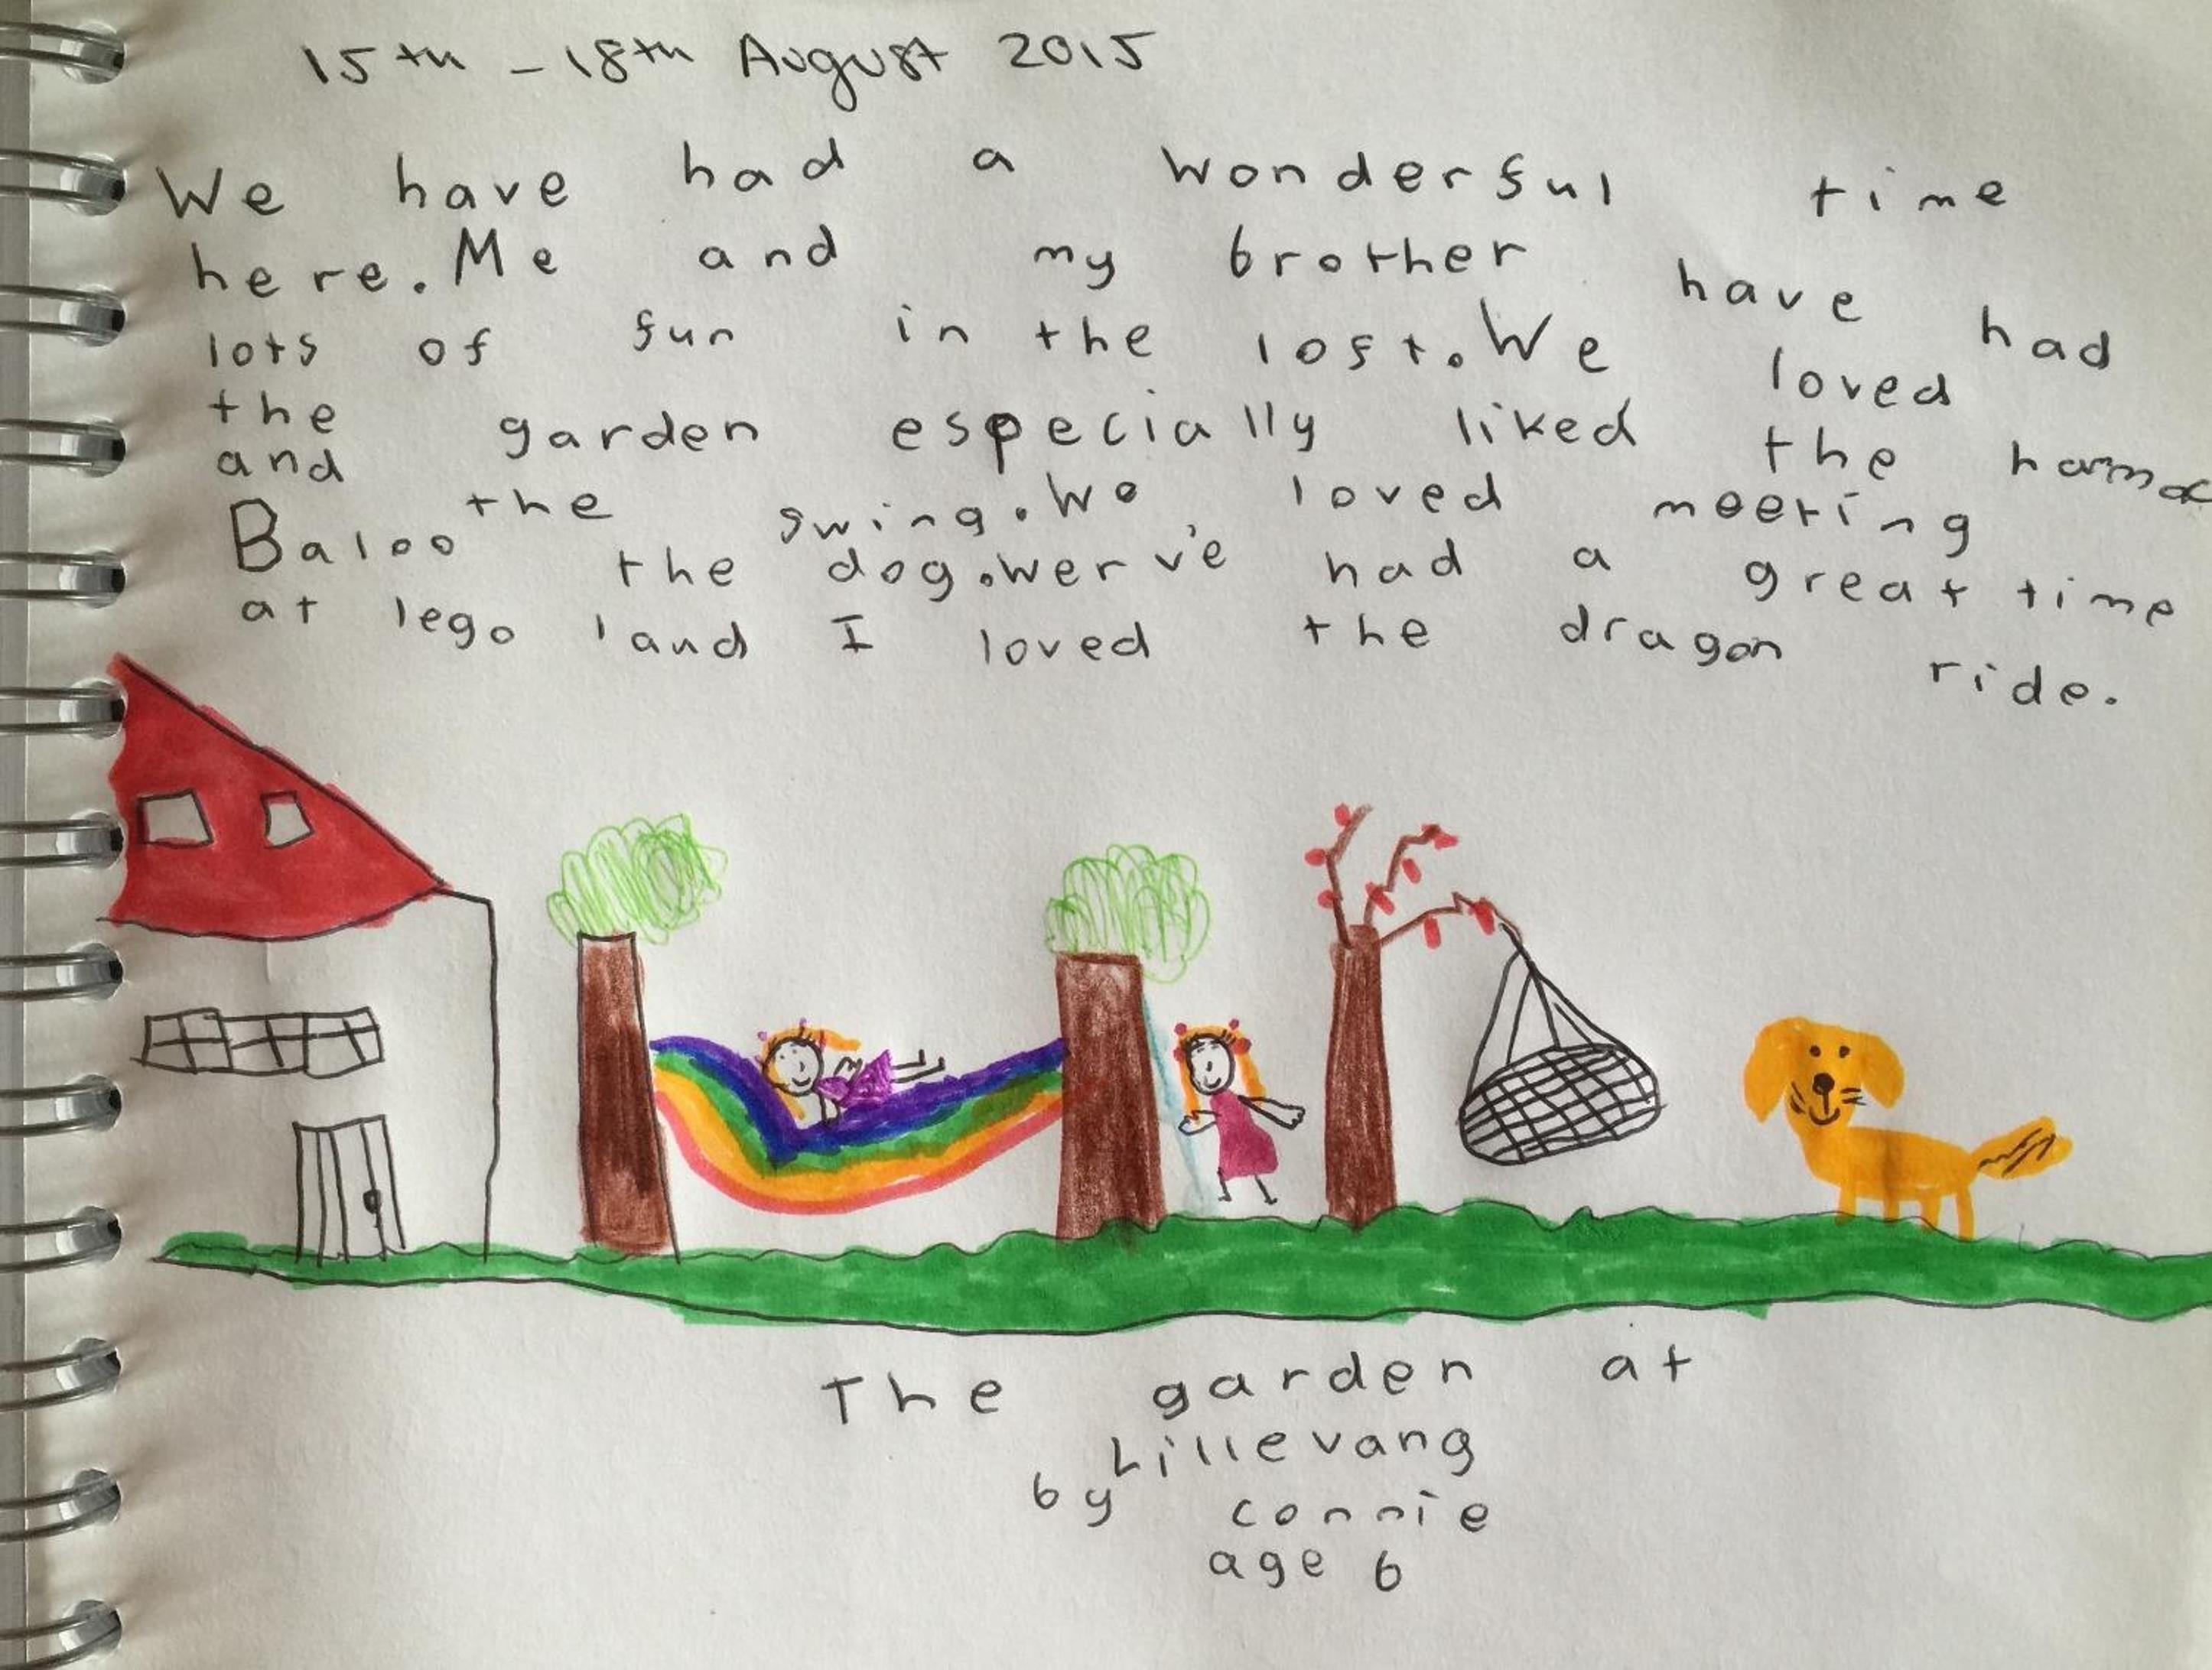 15th - 18th August 2015
We have had a wonderful time
here. Me and my brother have had
lots of fun in the loft. We loved
the garden especially liked the hamoc
and the swing. We loved meeting
Baloo the dog. werv'e had a great time
at lego land I loved the dragon ride.
The garden at
Lillevang
by connie
age 6